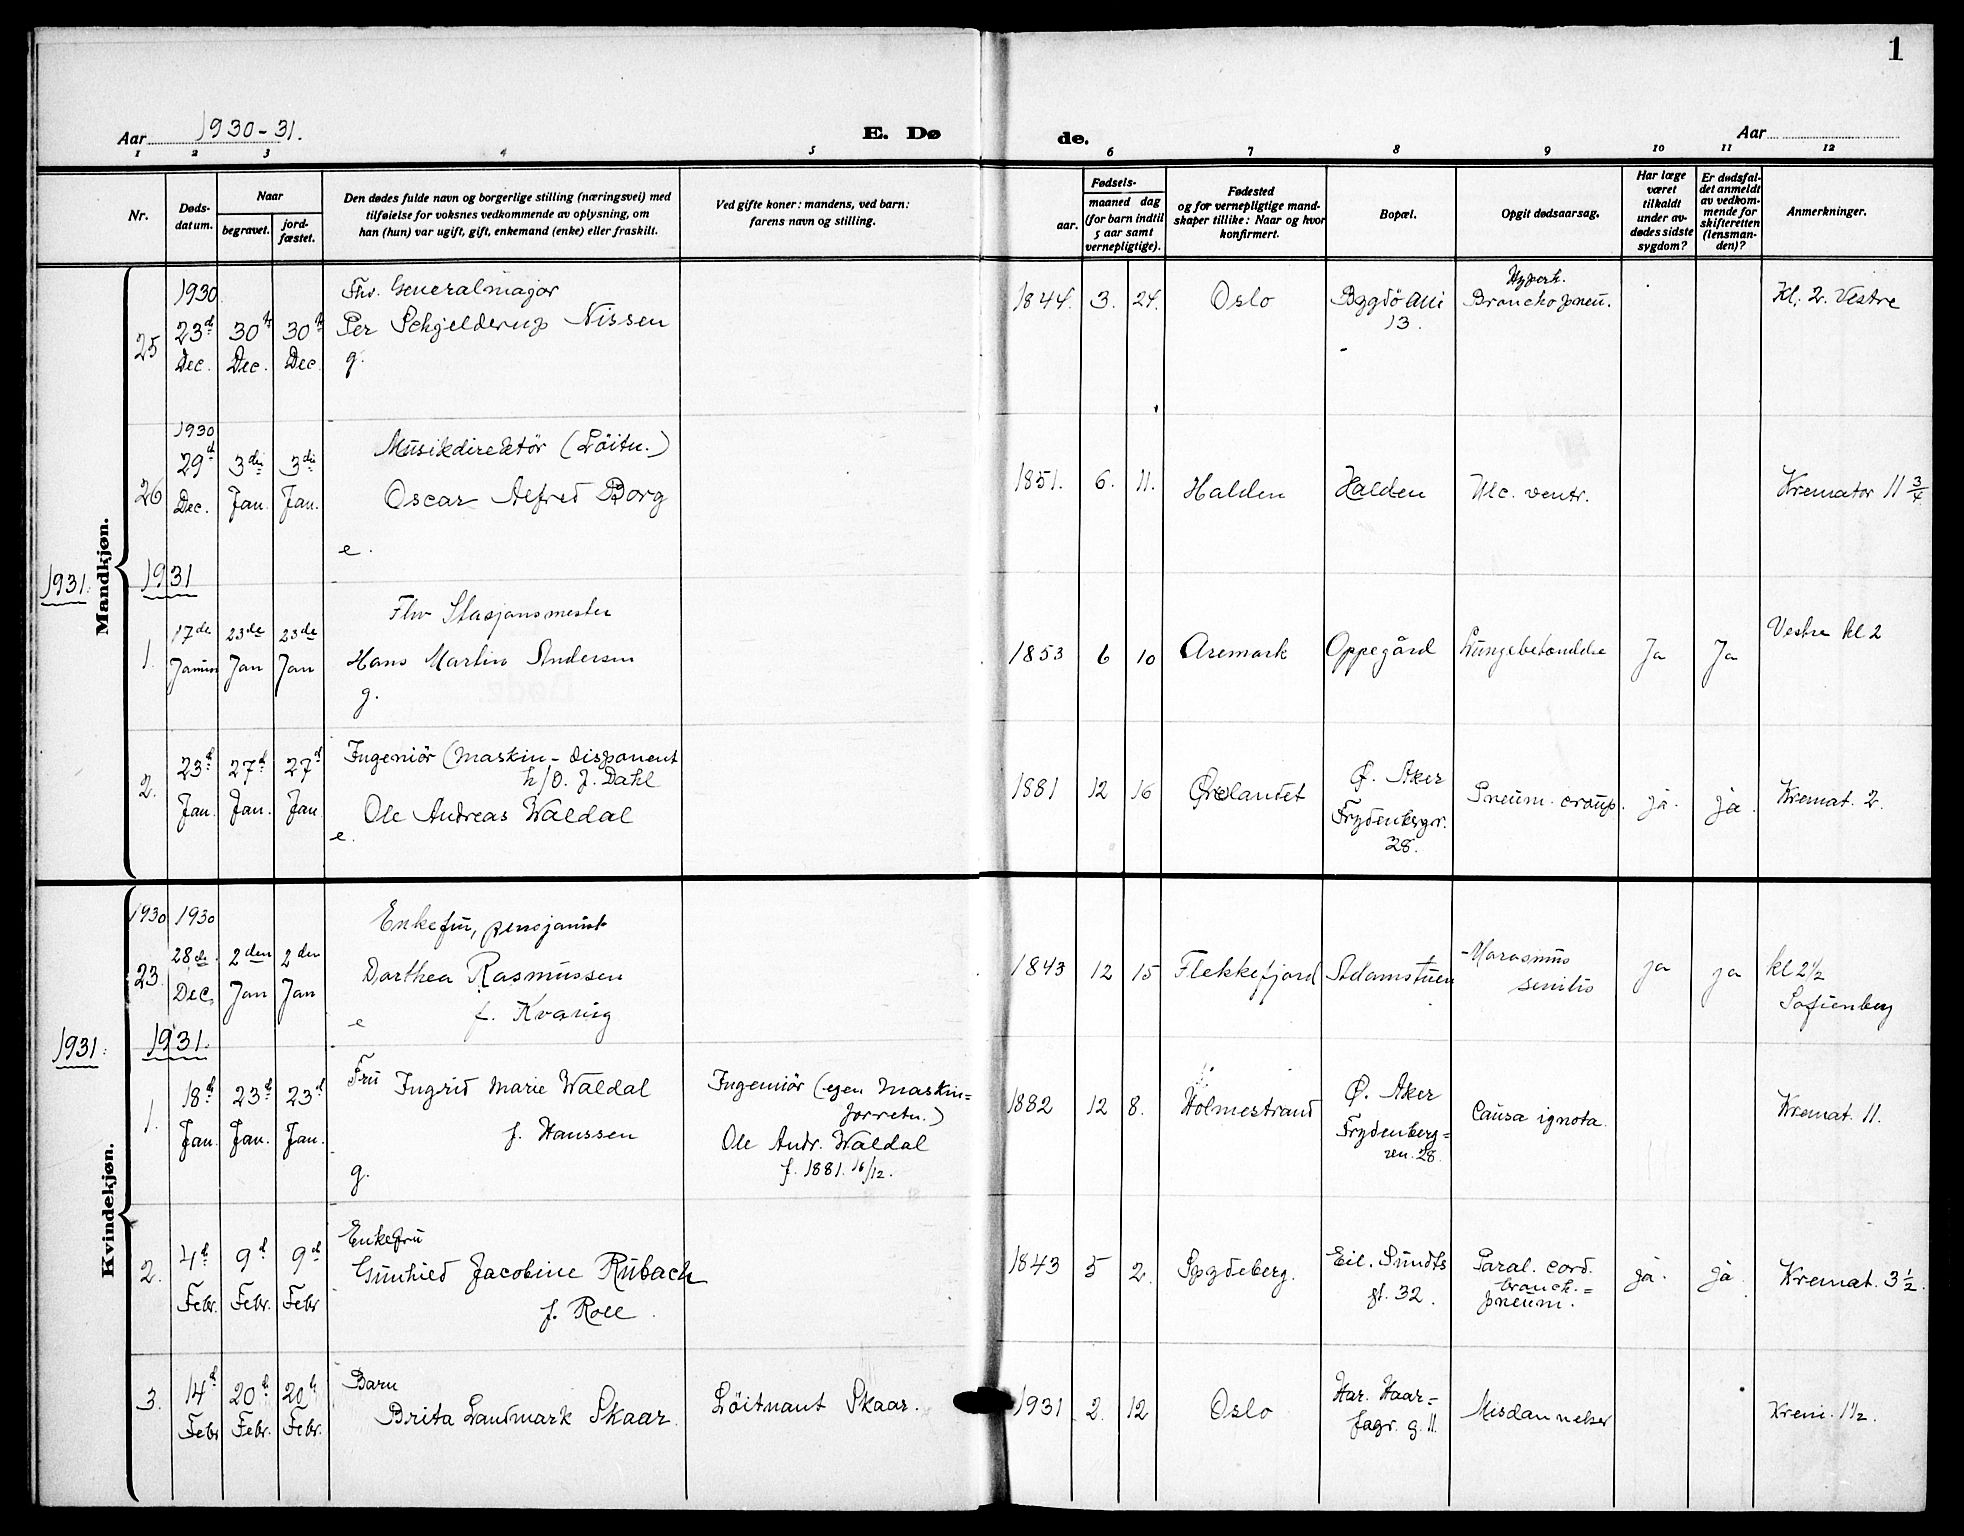 1
Aar 1930-31.
E. Dø
de.
Aar
1 2 3 4 5 6 7 8 9 10 11 12
Nr.
Døds-
datum.
Naar
begravet.
jord-
fæstet.
Den dødes fulde navn og borgerlige stilling (næringsvei) med
tilføielse for voksnes vedkommende av oplysning, om
han (hun) var ugift, gift, enkemand (enke) eller fraskilt.
Ved gifte koner: mandens, ved barn:
farens navn og stilling.
Fødsels-
aar.
maaned dag
(for barn indtil
5 aar samt
vernepligtige).
Fødested
og for vernepligtige mand-
skaper tillike: Naar og hvor
konfirmert.
Bopæl.
Opgit dødsaarsag.
Har læge
været
tilkaldt
under av-
dødes sidste
sygdom?
Er dødsfal-
det anmeldt
av vedkom-
mende for
skifteretten
(lensman-
den)?
Anmerkninger.
Mandkjøn.
1931.
25
1930
23d
Dec.
30te
Dec.
30te
Dec
Fhv. Generalmajor
Per Schjelderup Nissen
g.
1844. 3. 24.
Oslo
Bygdö Alli
13.
Hypost.
Bronchopneu.
Kl. 2. Vestre
26
1930
29d
Dec.
3die
Jan.
3die
Jan.
Musikdirektör (Löitn.)
Oscar Alfred Borg
e.
1851. 6. 11.
Halden
Halden
Ulc. ventr.
Kremator 11 3/4
1931
1.
17de
23de
Jan
23de
Jan
Fhv Stasjonsmester
Hans Martin Andersen
g.
1853 6 10
Aremark
Oppegård
Lungebetændelse
Ja
Ja
Vestre kl 2
2.
23d
Jan.
27d
Jan.
27d
Jan.
Ingeniör (Maskin- disponent
h/O. J. Dahl
Ole Andreas Waldal
e.
1881 12 16
Ørelandet
Ø. Aker
Frydenbergv.
28.
Pneum. croup.
ja.
ja.
Kremat. 2.
Kvindekjøn.
1931.
1930
23.
1930
28de
Dec,
2den
Jan
2den
Jan
Enkefru, pensjonist
Dorthea Rasmussen
f. Kvanig
e
1843 12 15
Flekkefjord
Adamstuen
Marasmus
senilis
ja
ja
kl 2½
Sofienberg
1931.
1.
18d
Jan.
23d
Jan.
23d
Jan.
Fru Ingrid Marie Waldal
f. Hanssen
g.
Ingeniör (egen Maskin=
forretn.)
Ole Andr. Waldal
f. 1881. 16/12.
1882 12 8.
Holmestrand
Ø. Aker
Frydenberg=
ven. 28.
Causa ignota.
Kremat. 11.
2.
4d
Febr.
9d
Febr.
9d
Febr
Enkefru
Gunhild Jacobine Rubach
f. Roll.
1843 5 2.
Spydeberg.
Eil. Sundts
gt. 32.
Paral. cord.
bronch.=
pneum.
ja.
ja.
Kremat. 3½.
3.
14d
Febr
20d
Febr.
20d
Febr.
Barn
Brita Landmark Skaar.
Löitnant Skaar.
1931 2. 12
Oslo
Har. Haar=
fagr. g. 11.
Misdannelser
Krem. 1½.